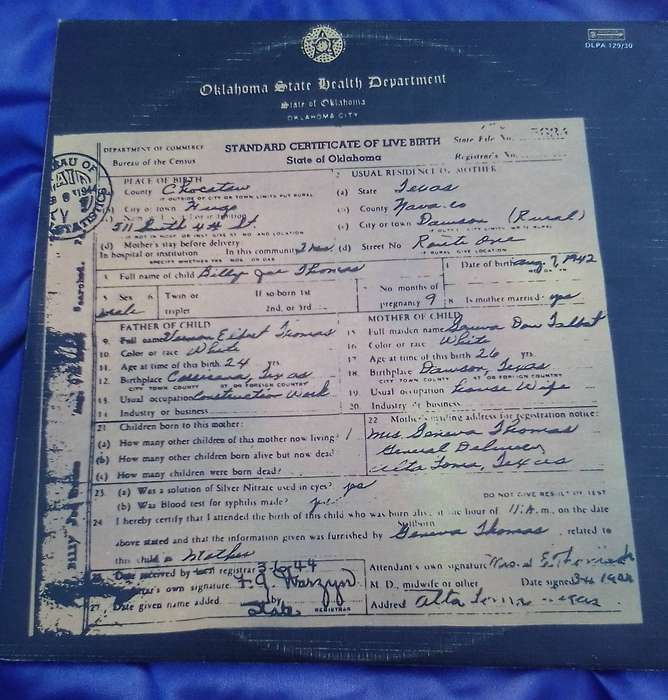 DLPA 129/30
Oklahoma State Health Department
State of Oklahoma
OKLAHOMA CITY
DEPARTMENT OF COMMERCE
Bureau of the Census
STANDARD CERTIFICATE OF LIVE BIRTH
State of Oklahoma
State File No.
Registrar's No.
PLACE OF BIRTH
County Choctaw
IF OUTSIDE OF CITY OR TOWN LIMITS PUT RURAL
City or town Hugo
511 South 4th St
IF NOT IN HOSP OR INST GIVE ST NO. AND LOCATION
(d) Mother's stay before delivery
In hospital or institution In this community
SPECIFY WHETHER YRS MOS OR DAS
2 USUAL RESIDENCE OF MOTHER
(a) State Texas
(b) County Navarro
(c) City or town Dawson (Rural)
(d) Street No Route One
IF RURAL GIVE LOCATION
3 Full name of child Billy Joe Thomas
4 Date of birth Aug 7, 1942
5 Sex male
6 Twin or triplet
If so born 1st 2nd, or 3rd
7 No months of pregnancy 9
8 Is mother married yes
FATHER OF CHILD
9. Full name Vernon Thomas
10. Color or race White
11. Age at time of this birth 24 yrs
12. Birthplace Corsicana, Texas
CITY TOWN COUNTY ST OR FOREIGN COUNTRY
13. Usual occupation Construction Work
14. Industry or business
MOTHER OF CHILD
15. Full maiden name Geneva Talbot
16. Color or race White
17. Age at time of this birth 26 yrs
18. Birthplace Dawson, Texas
CITY TOWN COUNTY ST OR FOREIGN COUNTRY
19. Usual occupation House Wife
20. Industry or business
21 Children born to this mother:
(a) How many other children of this mother now living? 1
(b) How many other children born alive but now dead
(c) How many children were born dead?
22 Mother's mailing address for registration notice:
Mrs Geneva Thomas
General Delivery
Alta Loma, Texas
23 (a) Was a solution of Silver Nitrate used in eyes? yes
(b) Was Blood test for syphilis made? yes
DO NOT GIVE RESULT OF TEST
24 I hereby certify that I attended the birth of this child who was born alive at the hour of 11 A.m., on the date
above stated and that the information given was furnished by Geneva Thomas, related to
this child as Mother
Date received by registrar 3-6-44
Attendant's own signature
Registrar's own signature
M. D., midwife or other
Date signed
27 Date given name added by State REGISTRAR
Address Alta Loma Texas